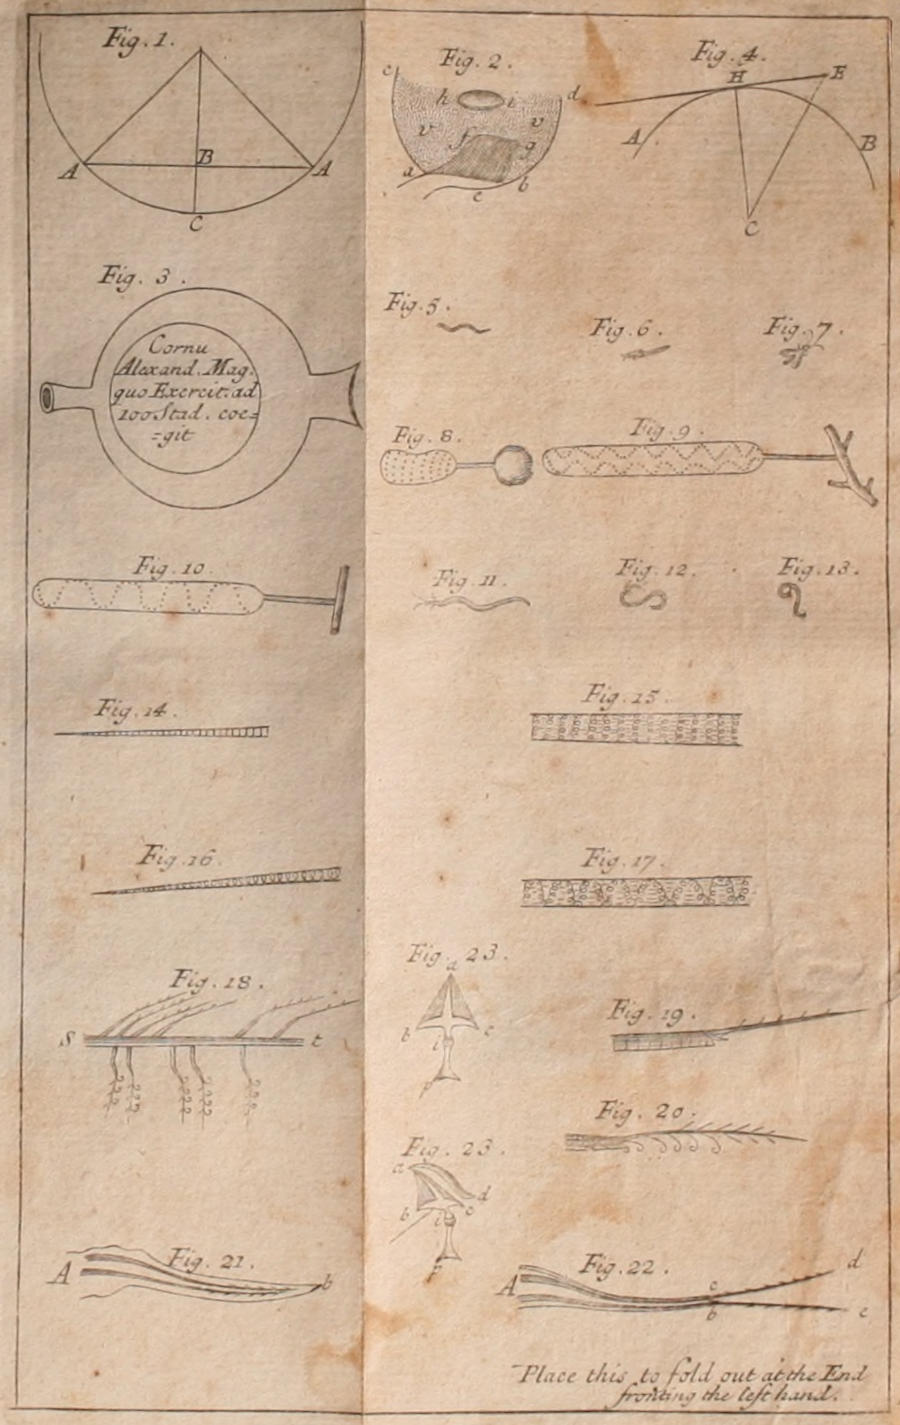 Fig. 1.
A
B
A
C
Fig. 2.
c
d
h
i
v
v
f
g
a
b
e
Fig. 4.
H
E
A
B
C
Fig. 3.
Cornu
Alexand. Mag.
quo Exercit. ad
100 Stad. coe=
=git
Fig. 5.
Fig. 6.
Fig. 7.
Fig. 8.
Fig. 9.
Fig. 10.
Fig. 11.
Fig. 12.
Fig. 13.
Fig. 14.
Fig. 15.
Fig. 16.
Fig. 17.
Fig. 18.
S
t
Fig. 23.
a
b
c
i
Fig. 19.
Fig. 20.
Fig. 23.
a
b
d
c
i
Fig. 21.
A
b
Fig. 22.
A
c
b
d
e
Place this to fold out at the End
fronting the left hand.